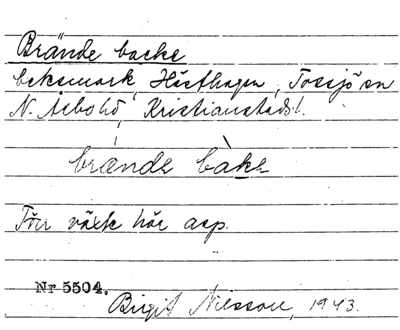 Brände backe
beksmark Hästhagen, Tossjö sn
N. Åsbo hd, Kristianstads l.
bränds bàke
Förr växte här asp.
Nr 5504.
Birgit Nilsson, 1943.